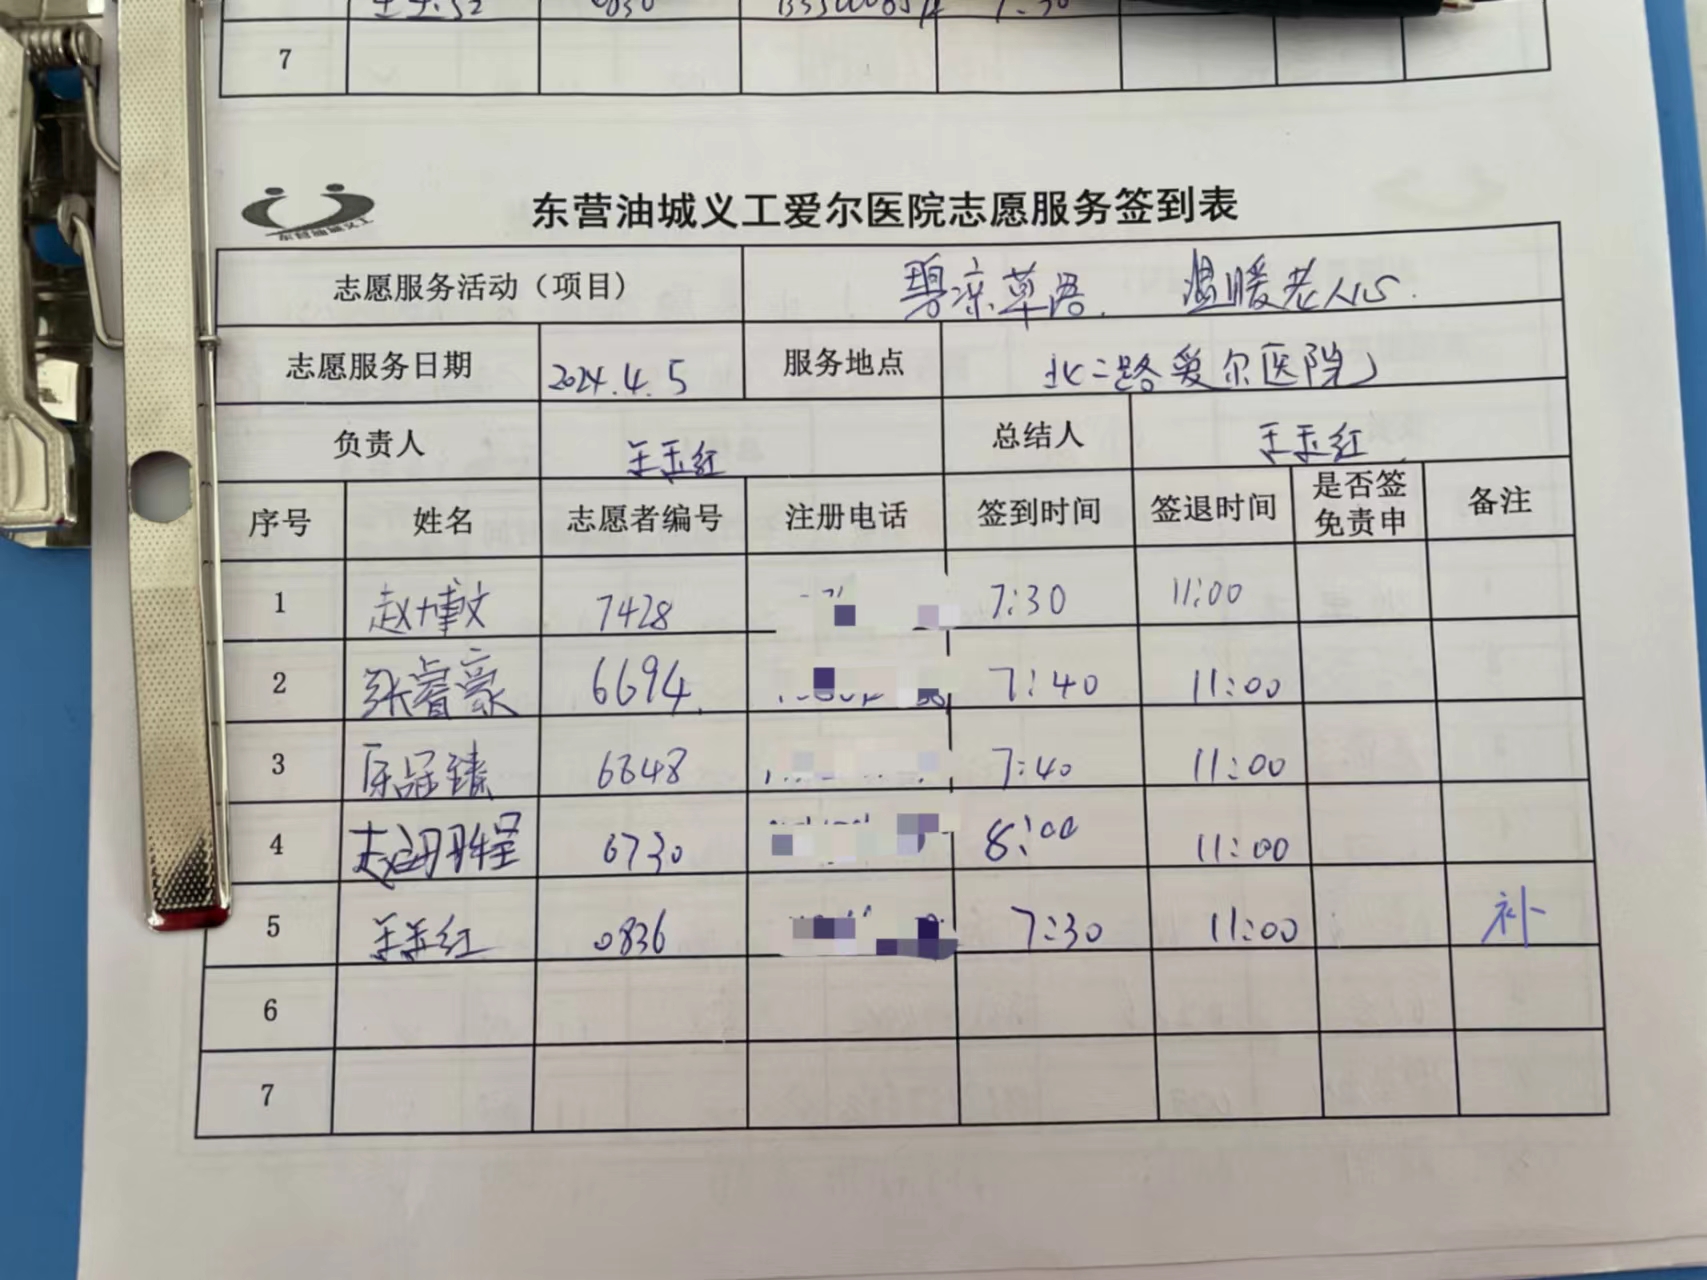 7
东营油城义工
东营油城义工爱尔医院志愿服务签到表
志愿服务活动（项目） 碧凉草语. 温暖老人心.
志愿服务日期 2024.4.5 服务地点 北二路爱尔医院
负责人 王玉红 总结人 王玉红
序号 姓名 志愿者编号 注册电话 签到时间 签退时间 是否签免责申 备注
1 赵博文 7428 7:30 11:00
2 张睿豪 6694. 7:40 11:00
3 6848 7:40 11:00
4 6730 8:00 11:00
5 王玉红 0836 7:30 11:00 补
6
7